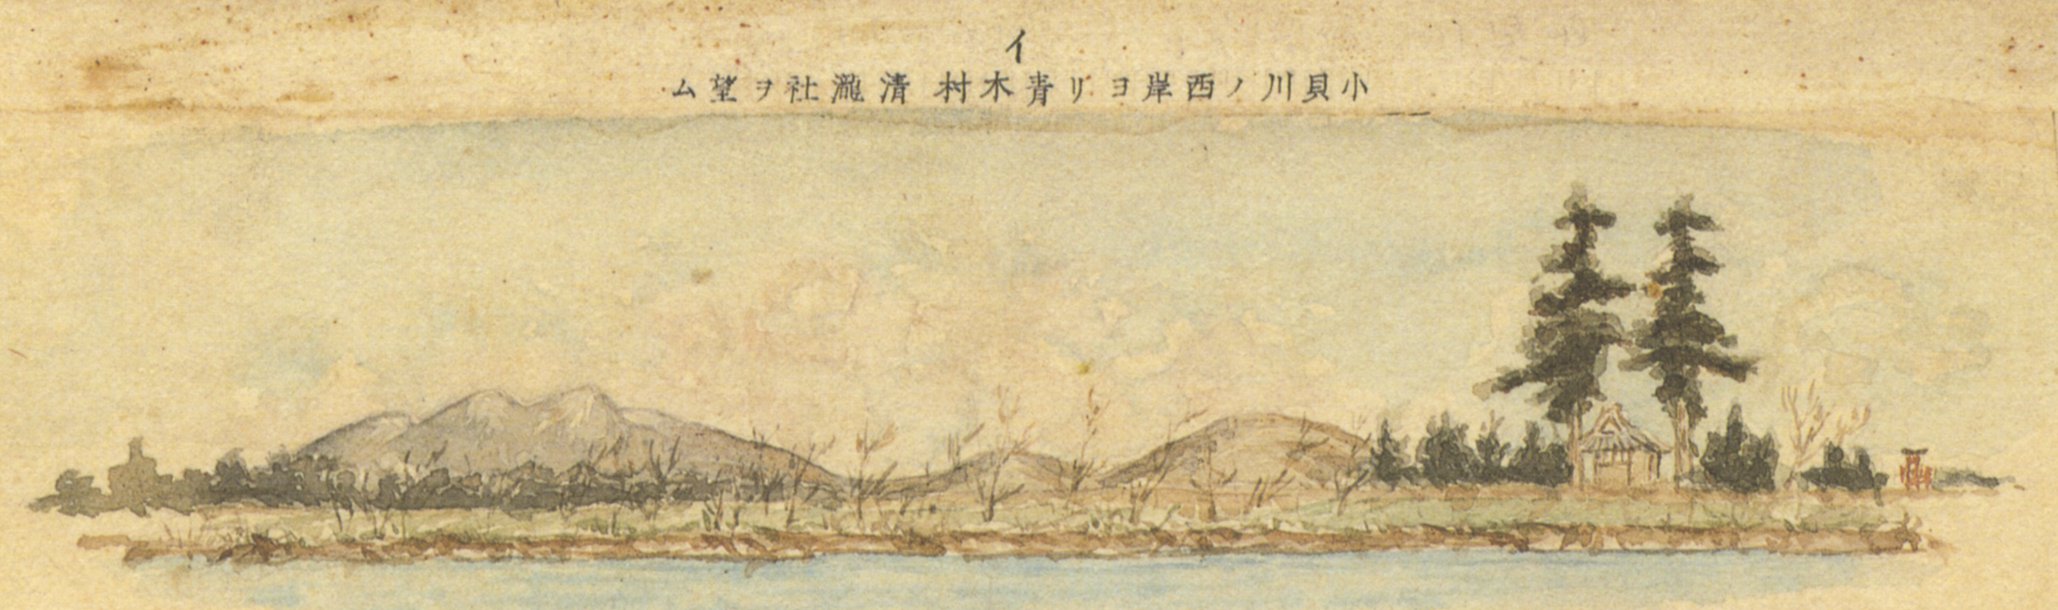 イ
小貝川ノ西岸ヨリ青木村清瀧社ヲ望ム